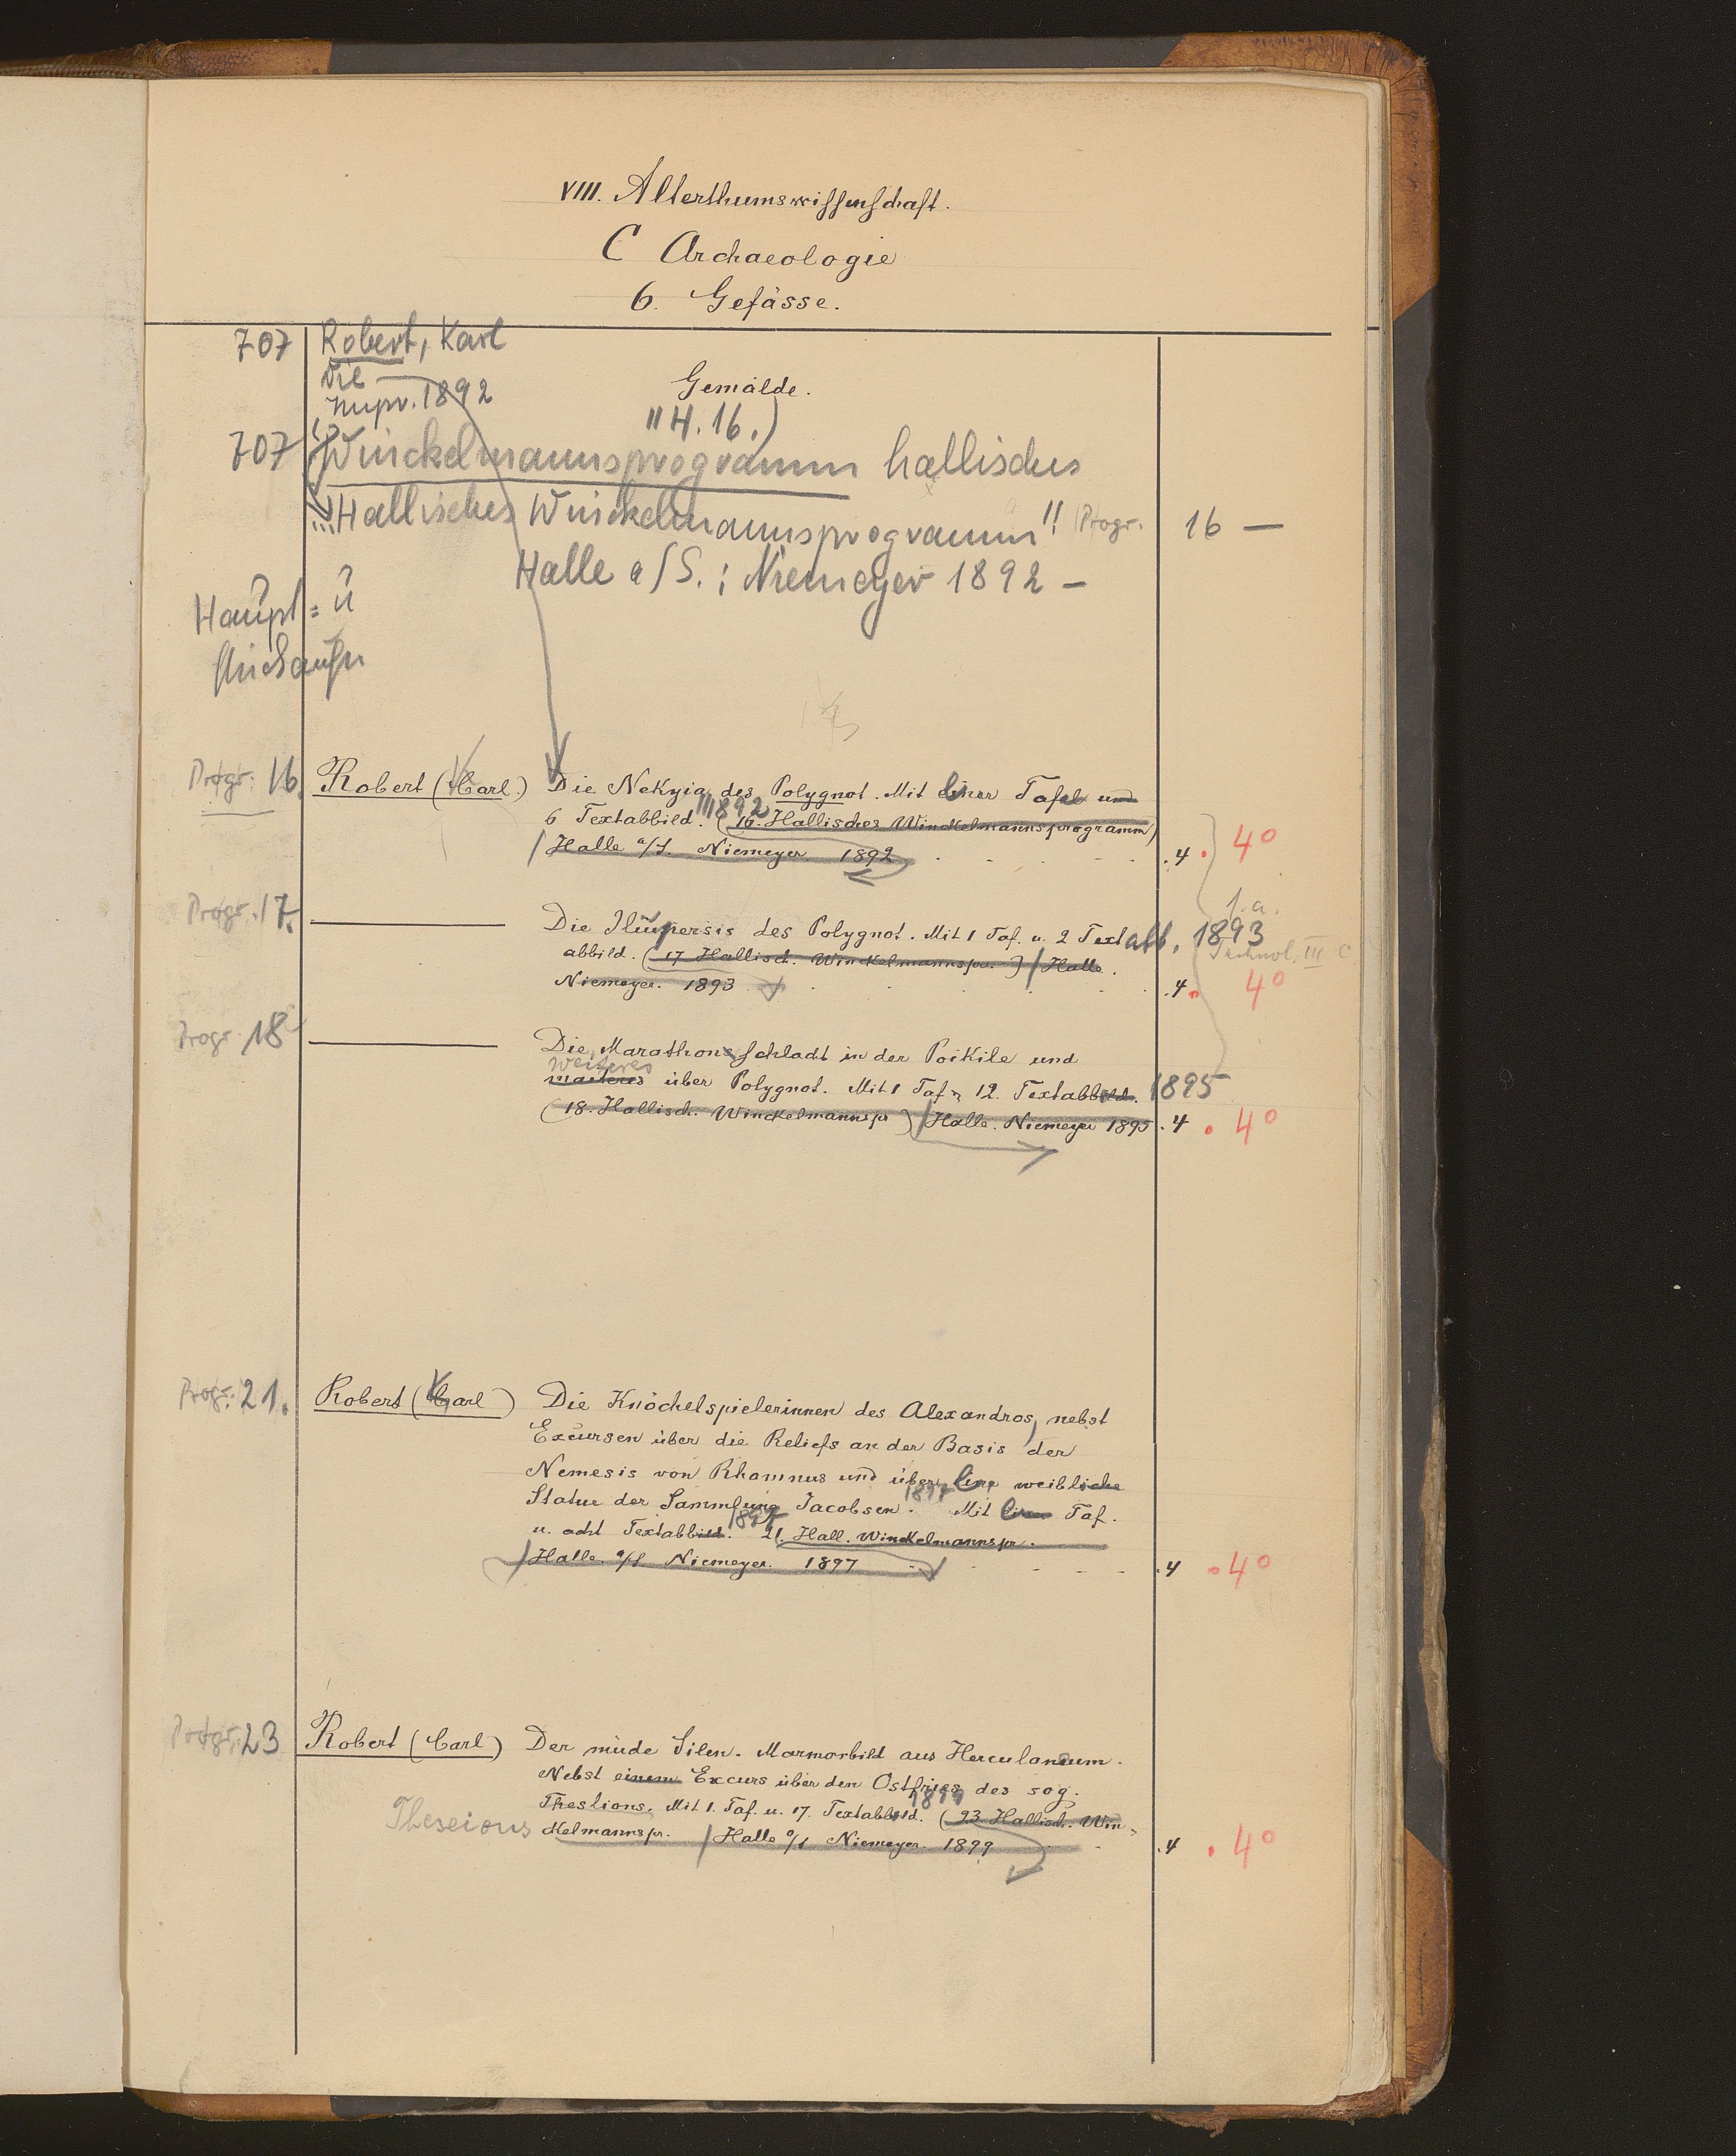 VIII. Alterthumswissenschaft.
C Archaeologie
6. Gefässe.
707 Robert, Karl
Die
1892
Gemälde.
H. 16.)
707 Winckelmannsprogramm hallisches
"Hallisches Winckelmannsprogramm" Progr. 16 —
Halle a/S. : Niemeyer 1892 –
Haupt= u
Progr. 16. Robert (Carl.) Die Nekyia des Polygnot. Mit einer Tafel und
6 Textabbild. 1892 (16. Hallisches Winckelmannsprogramm)
Halle a/S. Niemeyer 1892 . 4 . 4°
Progr. 17. Die Iliupersis des Polygnot. Mit 1 Taf. u. 2 Textabb. 1893
abbild. (17 Hallisch. Winckelmannspr.) Halle.
Technol. III C
Niemeyer. 1893 . 4 . 4°
Progr. 18 Die Marathonschlacht in der Poikile und
weiteres
weiteres über Polygnot. Mit 1 Taf u. 12. Textabbild. 1895
(18. Hallisch. Winckelmannspr) Halle. Niemeyer 1895 . 4 . 4°
Progr. 21. Robert (Carl) Die Knöchelspielerinnen des Alexandros, nebst
Excursen über die Reliefs an der Basis der
Nemesis von Rhamnus und über eine weibliche
Statue der Sammlung Jacobsen. 1897 Mit einer Taf.
u. acht Textabbild. 1897 21. Hall. Winckelmannspr.
Halle a/S. Niemeyer. 1897 . 4 . 4°
Progr. 23 Robert (Carl) Der müde Silen. Marmorbild aus Herculaneum.
Nebst einem Excurs über den Ostfries des sog.
Thestions. Mit 1. Taf. u. 17. Textabbild. 1899 (23. Hallisch. Win-
Theseions
ckelmannspr. Halle a/S Niemeyer. 1899 . 4 . 4°